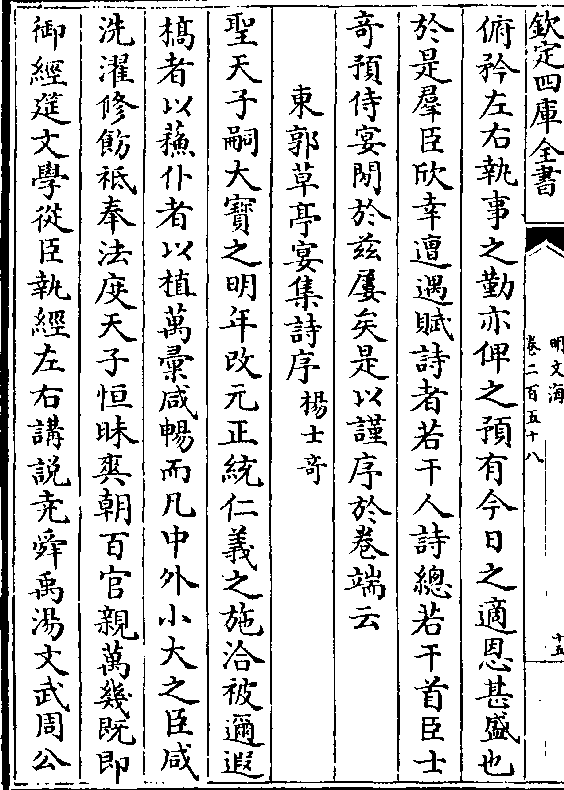 欽定四庫全書
明文海
卷二百五十八
十五
俯矜左右執事之勤亦俾之預有今日之適恩甚盛也
於是羣臣欣幸遭遇賦詩者若干人詩總若干首臣士
奇預侍宴閒於兹屢矣是以謹序於卷端云
東郭草亭宴集詩序 楊士奇
聖天子嗣大寶之明年改元正統仁義之施洽被邇遐
槁者以蘓仆者以植萬彚咸暢而凡中外小大之臣咸
洗濯修飭祗奉法度天子恒昧爽朝百官親萬幾既即
御經筵文學從臣執經左右講説堯舜禹湯文武周公